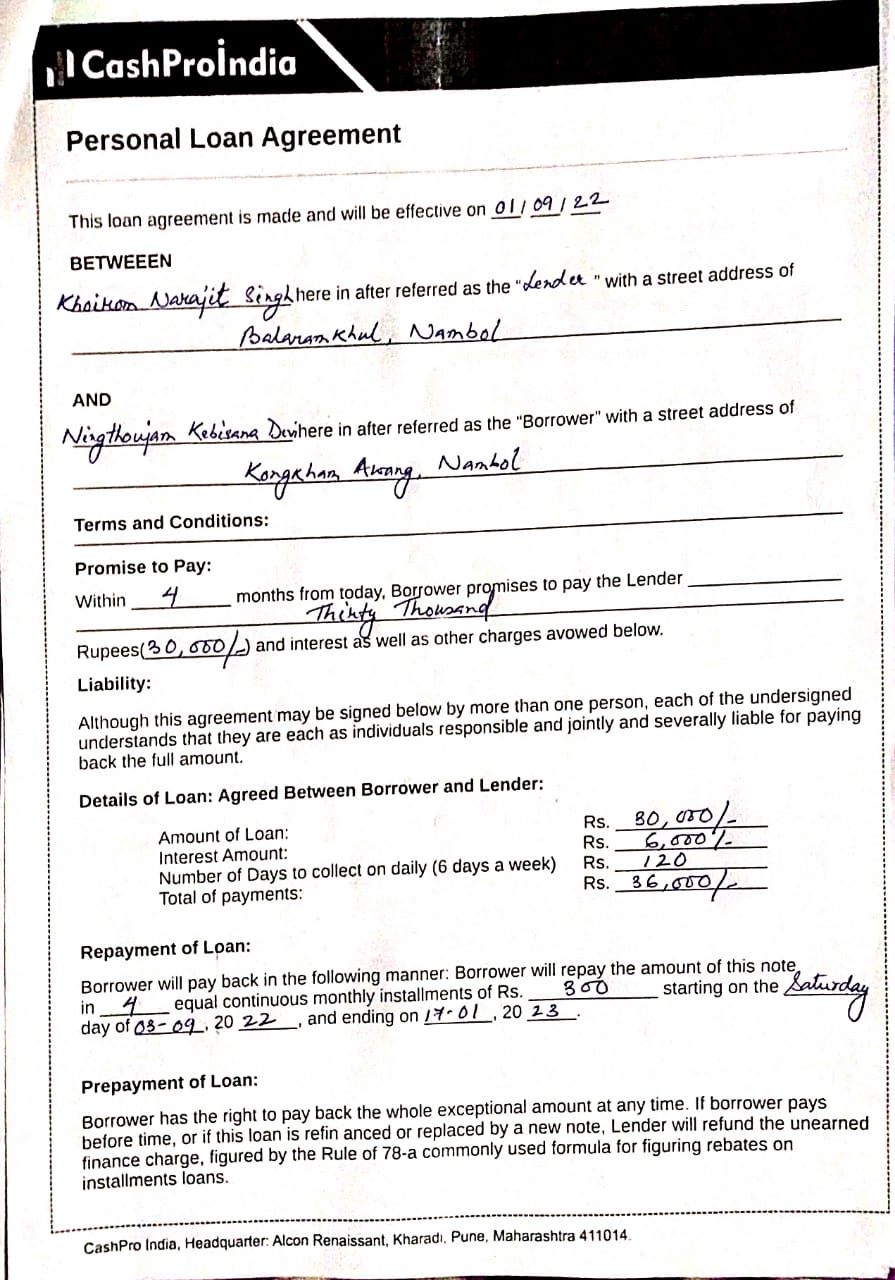 CashProIndia
Personal Loan Agreement
This loan agreement is made and will be effective on 01/09/22
BETWEEEN
Khoirom Narajit Singh here in after referred as the "Lender" with a street address of
Balaramkhul, Nambol
AND
Ningthoujam Kebisana Devi here in after referred as the "Borrower" with a street address of
Kongkham Awang, Nambol
Terms and Conditions:
Promise to Pay:
Within 4 months from today, Borrower promises to pay the Lender
Thirty Thousand
Rupees(30,000/-) and interest as well as other charges avowed below.
Liability:
Although this agreement may be signed below by more than one person, each of the undersigned
understands that they are each as individuals responsible and jointly and severally liable for paying
back the full amount.
Details of Loan: Agreed Between Borrower and Lender:
Amount of Loan: Rs. 30,000/-
Interest Amount: Rs. 6,000/-
Number of Days to collect on daily (6 days a week) Rs. 120
Total of payments: Rs. 36,000/-
Repayment of Loan:
Borrower will pay back in the following manner: Borrower will repay the amount of this note
in 4 equal continuous monthly installments of Rs. 300 starting on the Saturday
day of 03-09, 20 22, and ending on 17-01, 20 23.
Prepayment of Loan:
Borrower has the right to pay back the whole exceptional amount at any time. If borrower pays
before time, or if this loan is refin anced or replaced by a new note, Lender will refund the unearned
finance charge, figured by the Rule of 78-a commonly used formula for figuring rebates on
installments loans.
CashPro India, Headquarter: Alcon Renaissant, Kharadi, Pune, Maharashtra 411014.